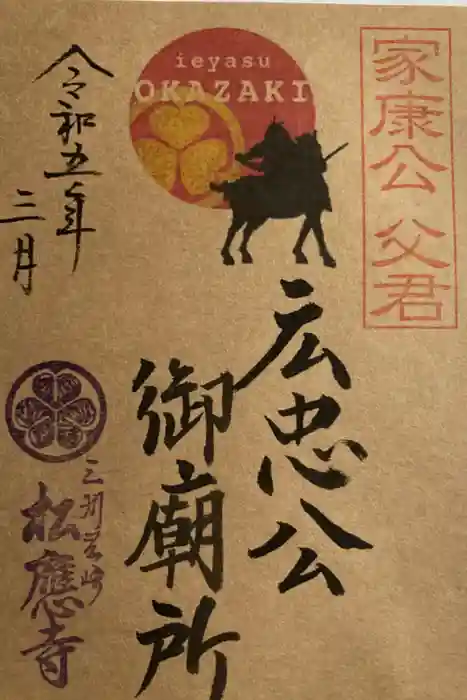 家康公父君
ieyasu
OKAZAKI
広忠公
御廟所
令和五年
三月
三州岡崎
松應寺